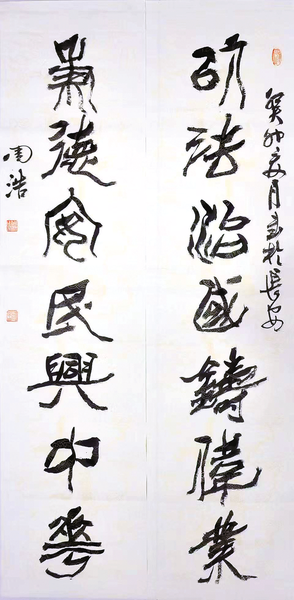 癸卯夏月書於長安
以法治國鑄偉業
秉德安民興中華
周浩